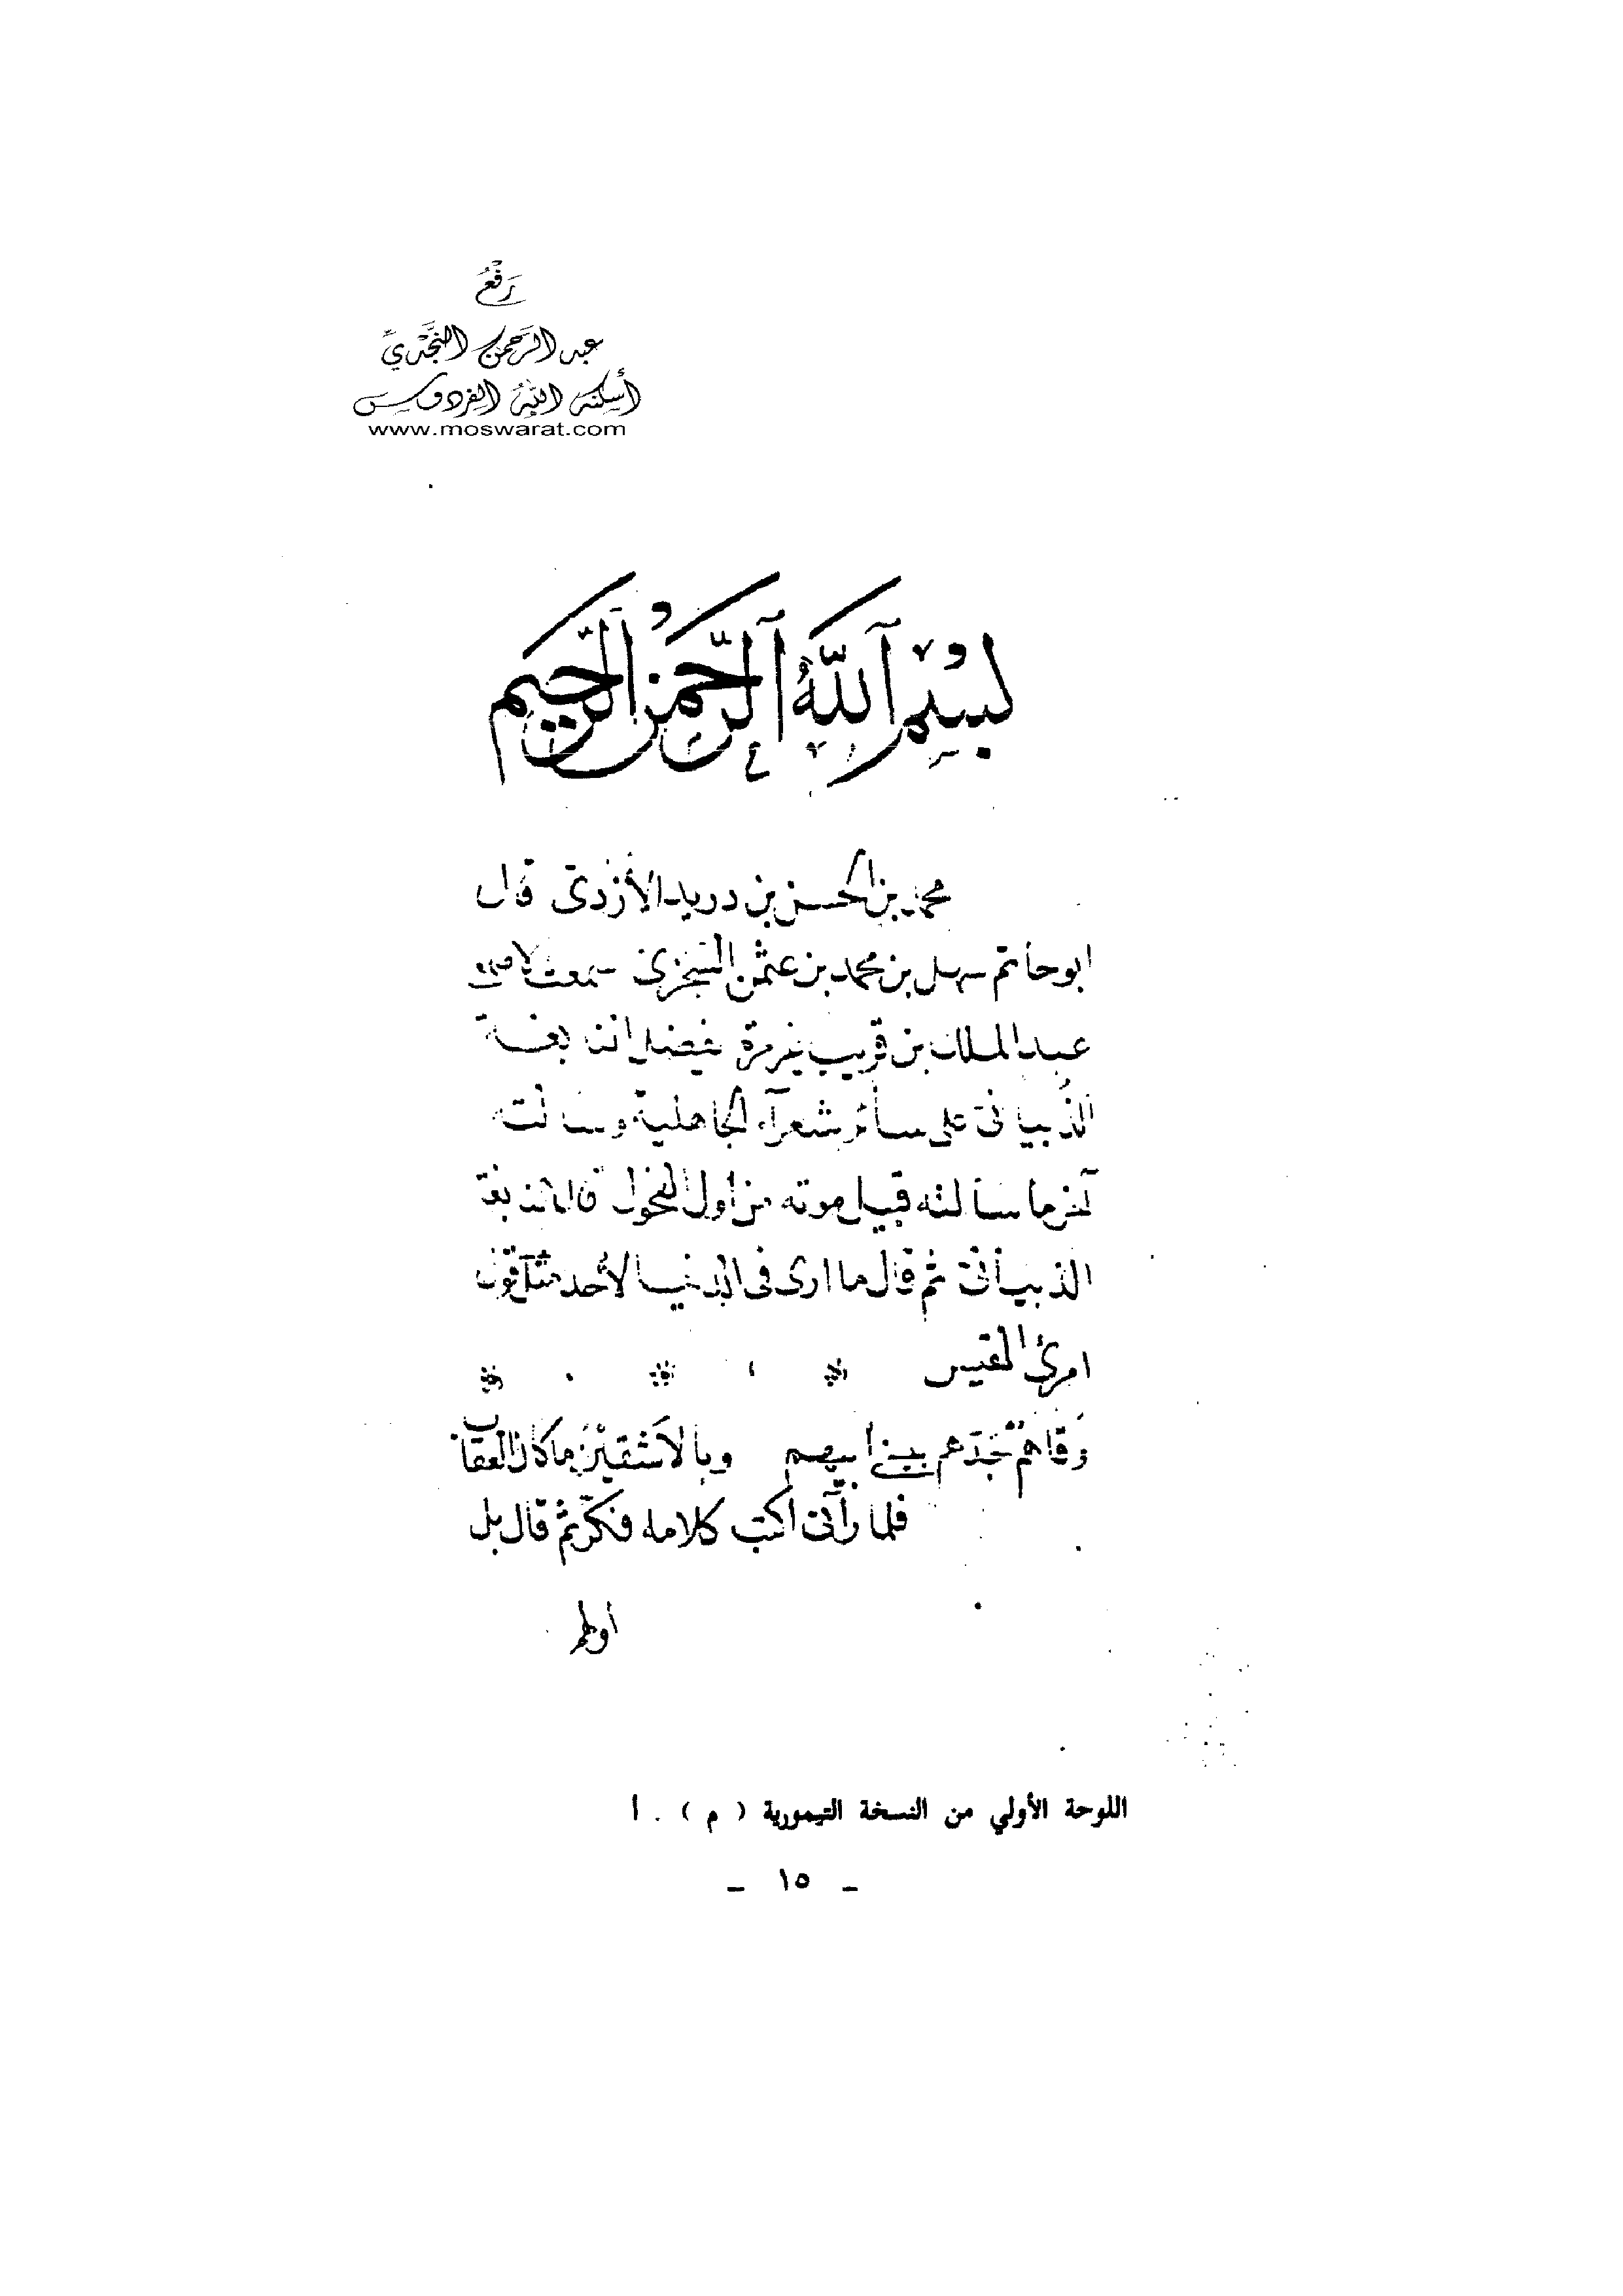 رَفْعُ
عبد الرَّحمن النَّجْديِّ
أسكنه اللهُ الفردوس
www.moswarat.com
بسم الله الرحمن الرحيم
محمد بن الحسن بن دريد الأزدى قال
ابو حاتم سهل بن محمد بن عثمن السجزى سمعت الاصمعى
عبد الملك بن قريب غير مرة يفضل النابغة
الذبيانى على سائر شعرآء الجاهلية وسالته
آخر ما سالته قبيل موته من اول الفحول قال النابغة
الذبيانى ثم قال ما ارى فى الدنيا لأحد مثل قول
امرئ القيس
وَقاهم جَدّهم ببنى أبيهم وبالاَشقَيْنَ ما كان العقاب
فلما رآنى اكتب كلامه فكّر ثم قال بل
أولهم
اللوحة الأولي من النسخة التيمورية ( م ) . أ
- ١٥ -